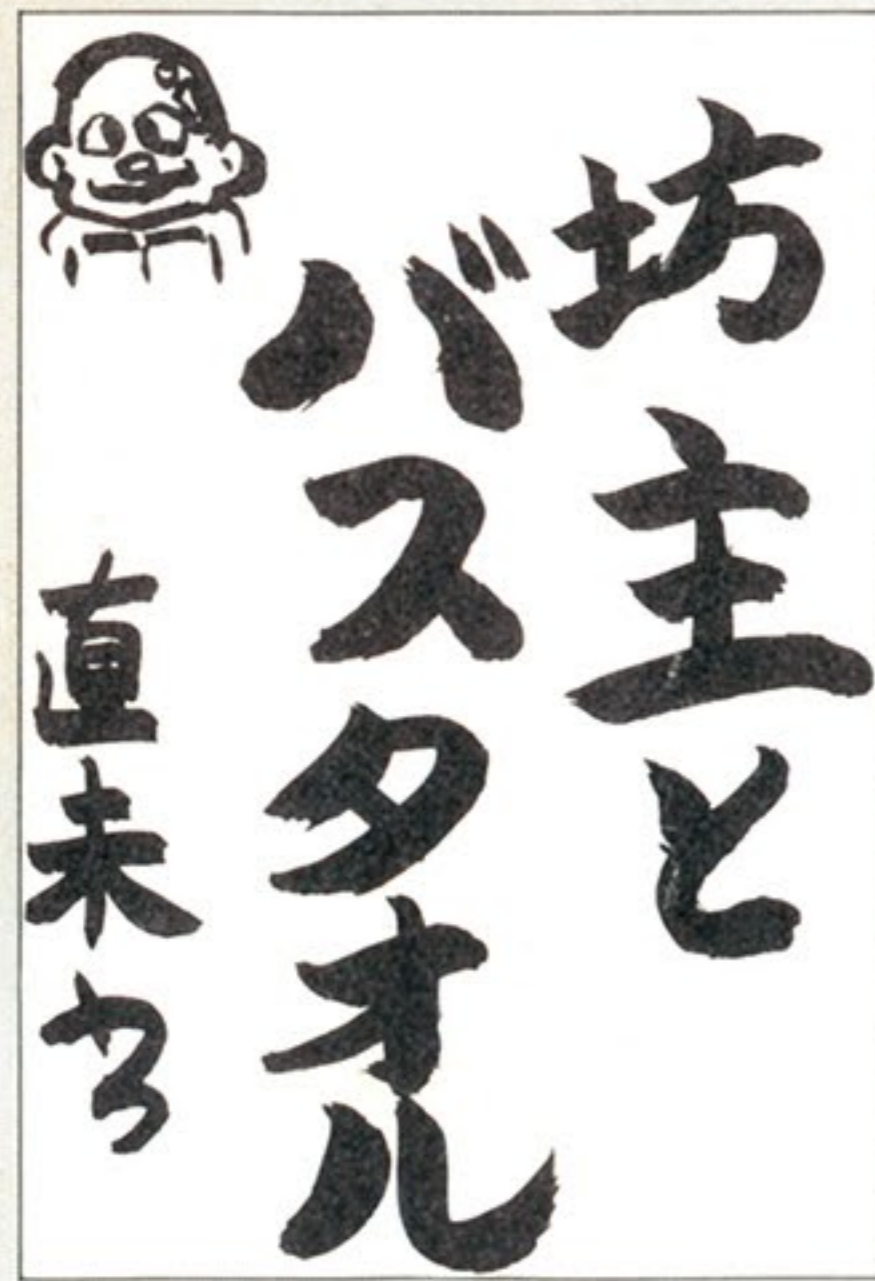 坊主と
バスタオル
直未